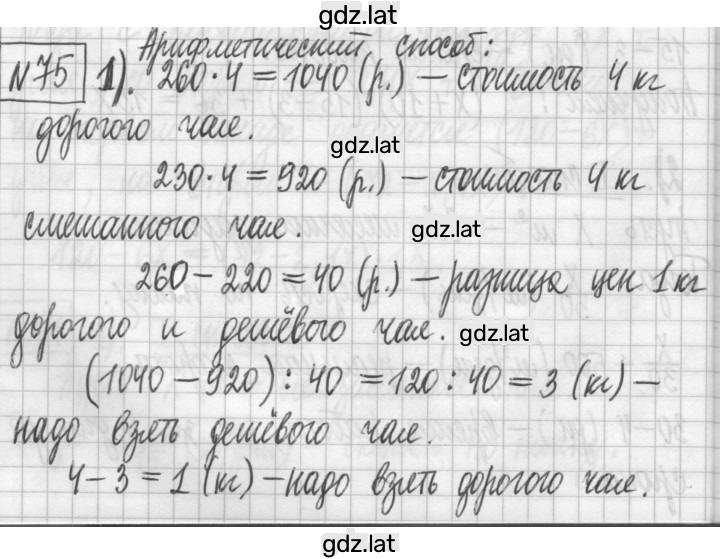 gdz.lat
Арифметический способ:
№75 1). 260·4=1040 (р.) – стоимость 4 кг
дорогого чая.
gdz.lat
230·4=920 (р.) – стоимость 4 кг
смешанного чая.
gdz.lat
260–220=40 (р.) – разница цен 1 кг
дорогого и дешёвого чая.
gdz.lat
(1040–920):40=120:40=3 (кг) –
надо взять дешёвого чая.
4–3=1 (кг) – надо взять дорогого чая.
gdz.lat